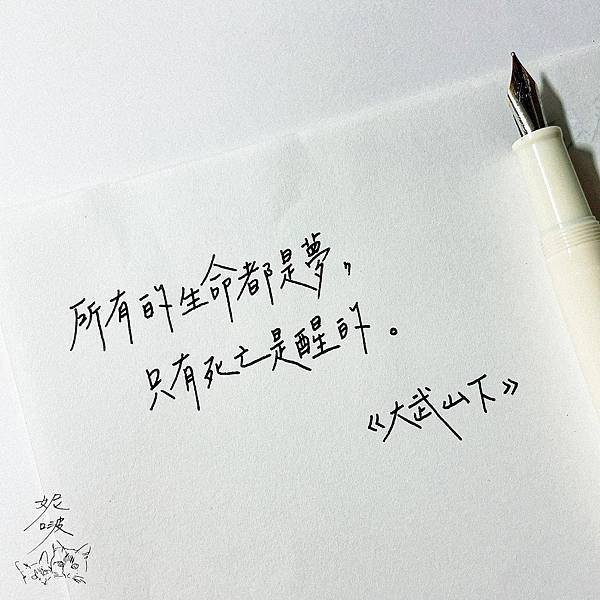 所有的生命都是夢，
只有死亡是醒的。
《大武山下》
妮
啵